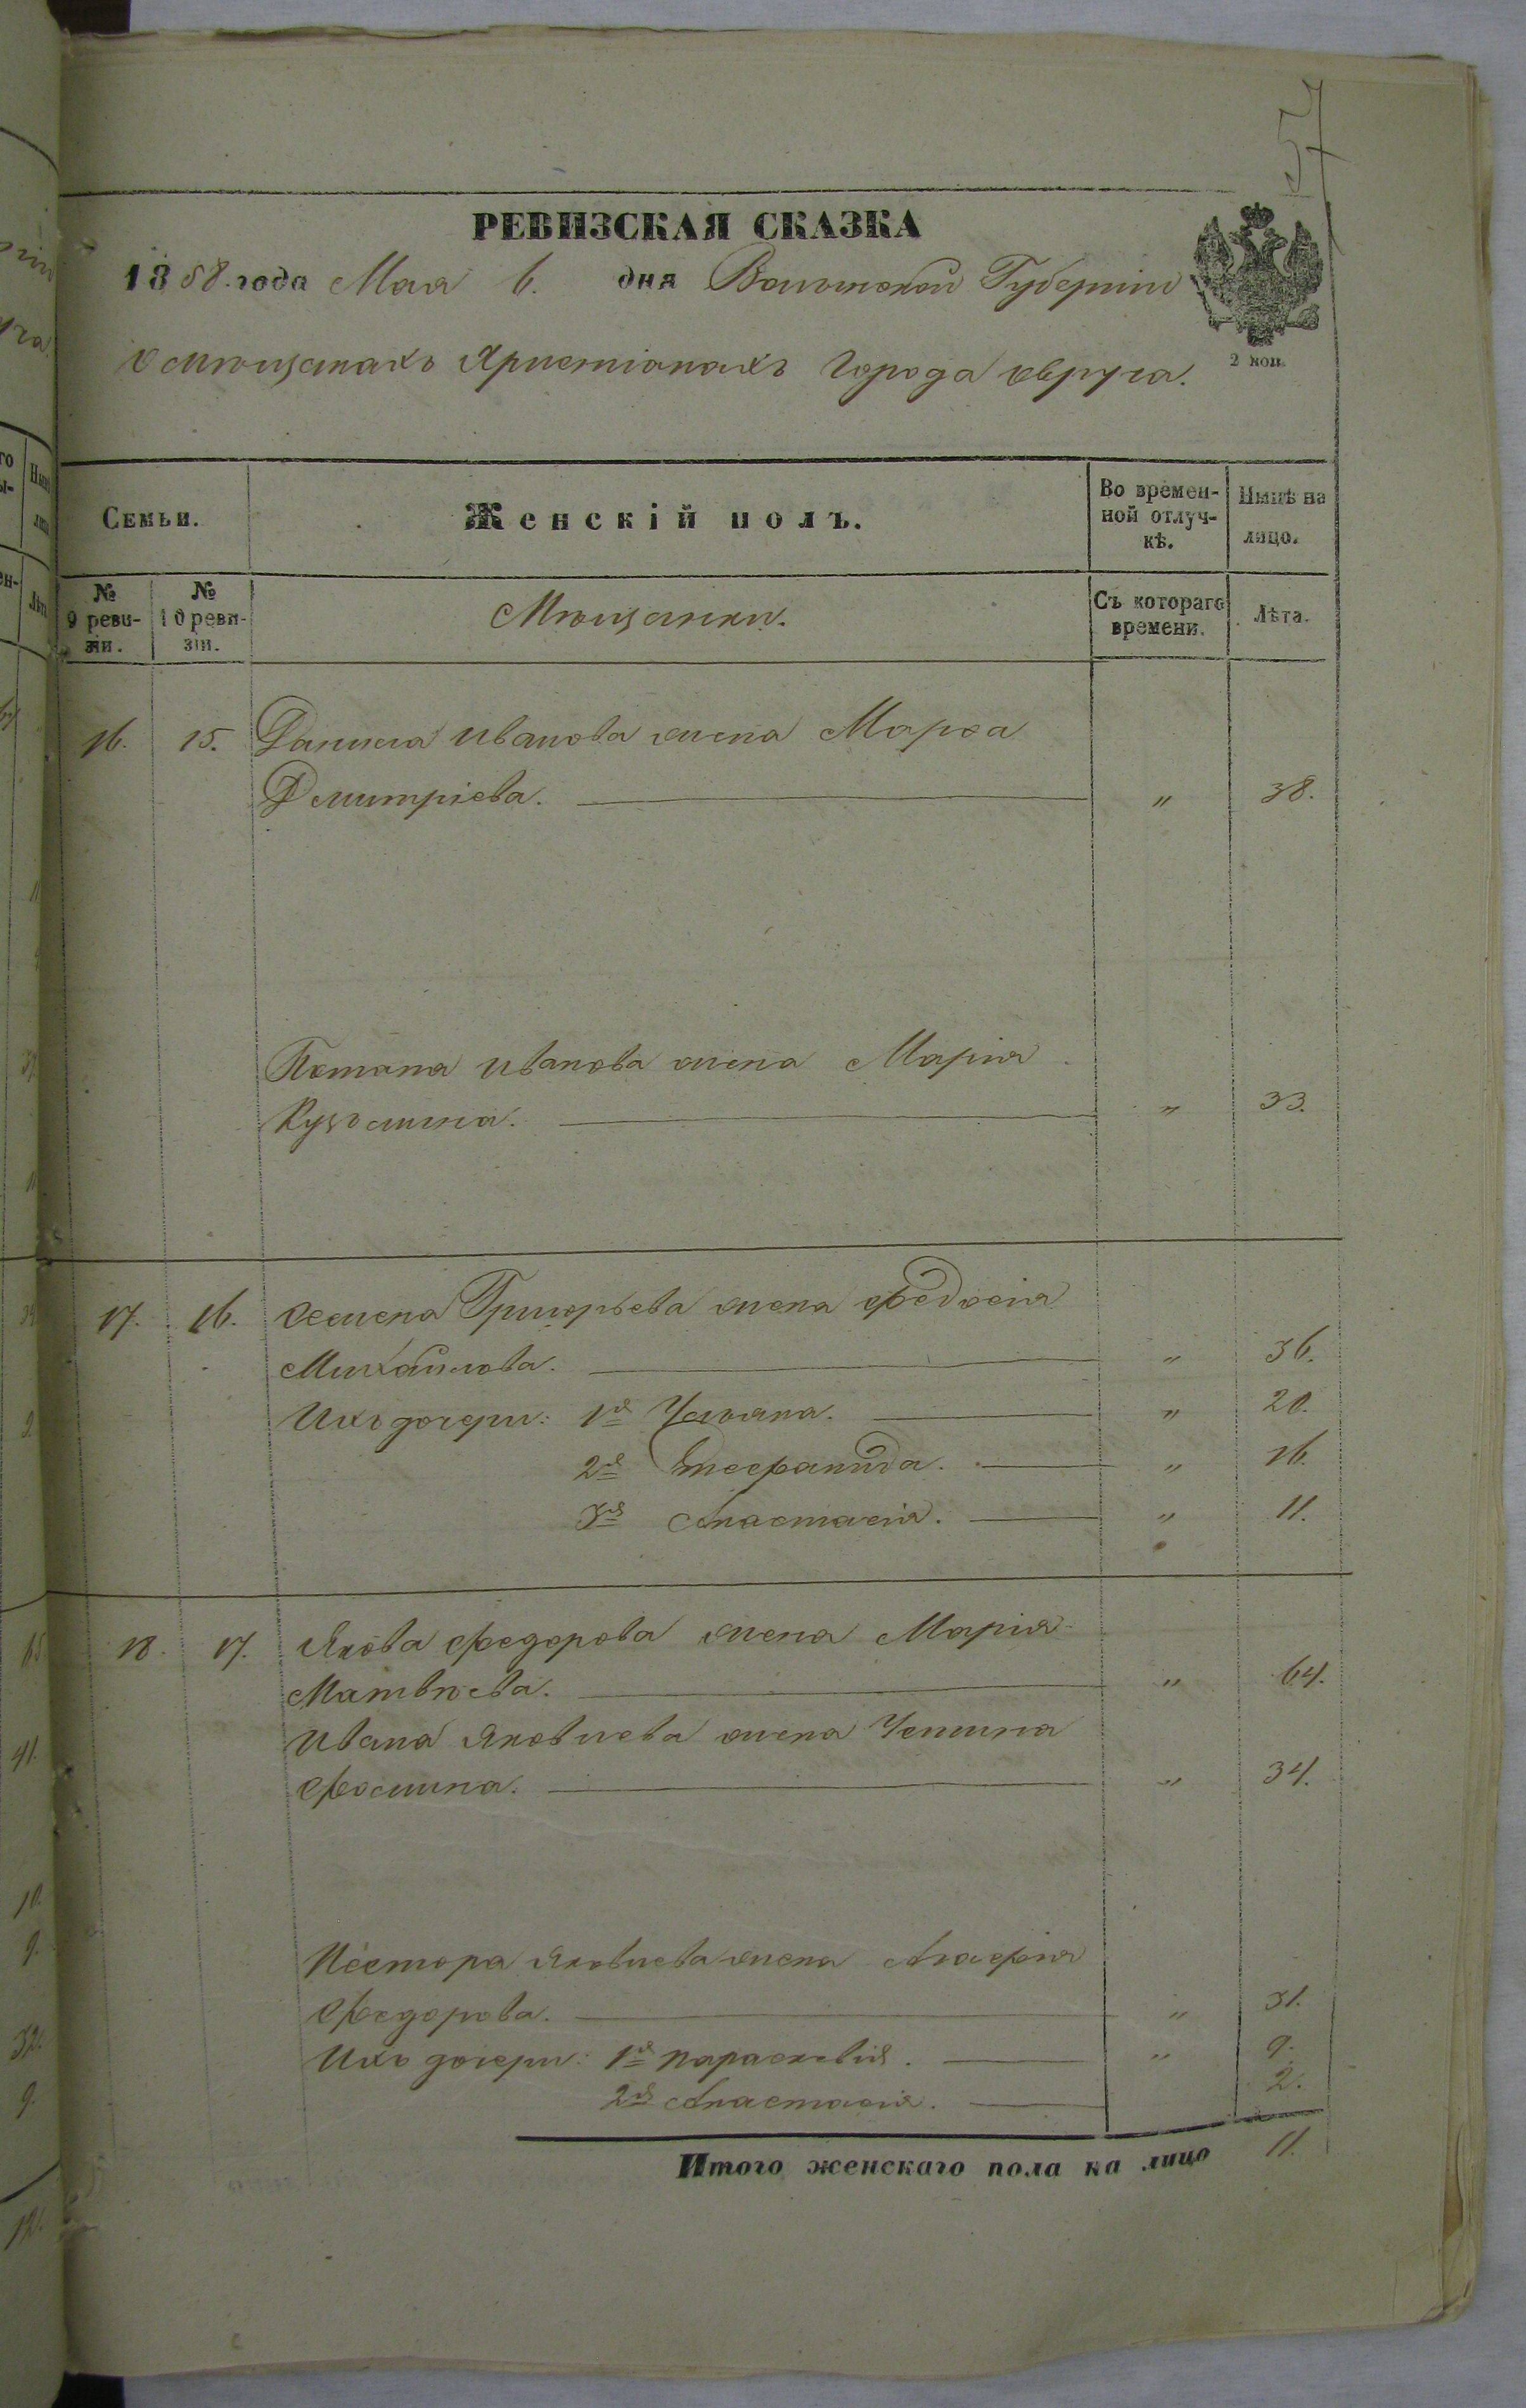 57
РЕВИЗСКАЯ СКАЗКА
1858. года Мая 6. дня Волынской Губерніи
2 коп.
О мѣщанахъ Христіанахъ Города Овруча.
Семьи.
Женскій полъ.
Во времен-
ной отлуч-
кѣ.
Нынѣ на
лицо.
№
9 реви-
зіи.
№
10 реви-
зіи.
Мѣщанки.
Съ котораго
времени.
Лѣта.
16. 15. Данила Иванова жена Марфа
Дмитріева. " 38.
Потапа Иванова жена Марія
Кузьмина. " 33.
17. 16. Семена Григорьева жена Федосія
Михайлова. " 36.
Ихъ дочери: 1я Ульяна. " 20.
2я Степанида. " 16.
3я Анастасія. " 11.
18. 17. Якова Федорова жена Марія
Матвѣева. " 64.
Ивана Яковлева жена
Фомина. " 34.
Нестора Яковлева жена Агафія
Федорова. " 31.
Ихъ дочери: 1я Параскевія. " 9.
2я Анастасія. 2.
Итого женскаго пола на лицо 11.